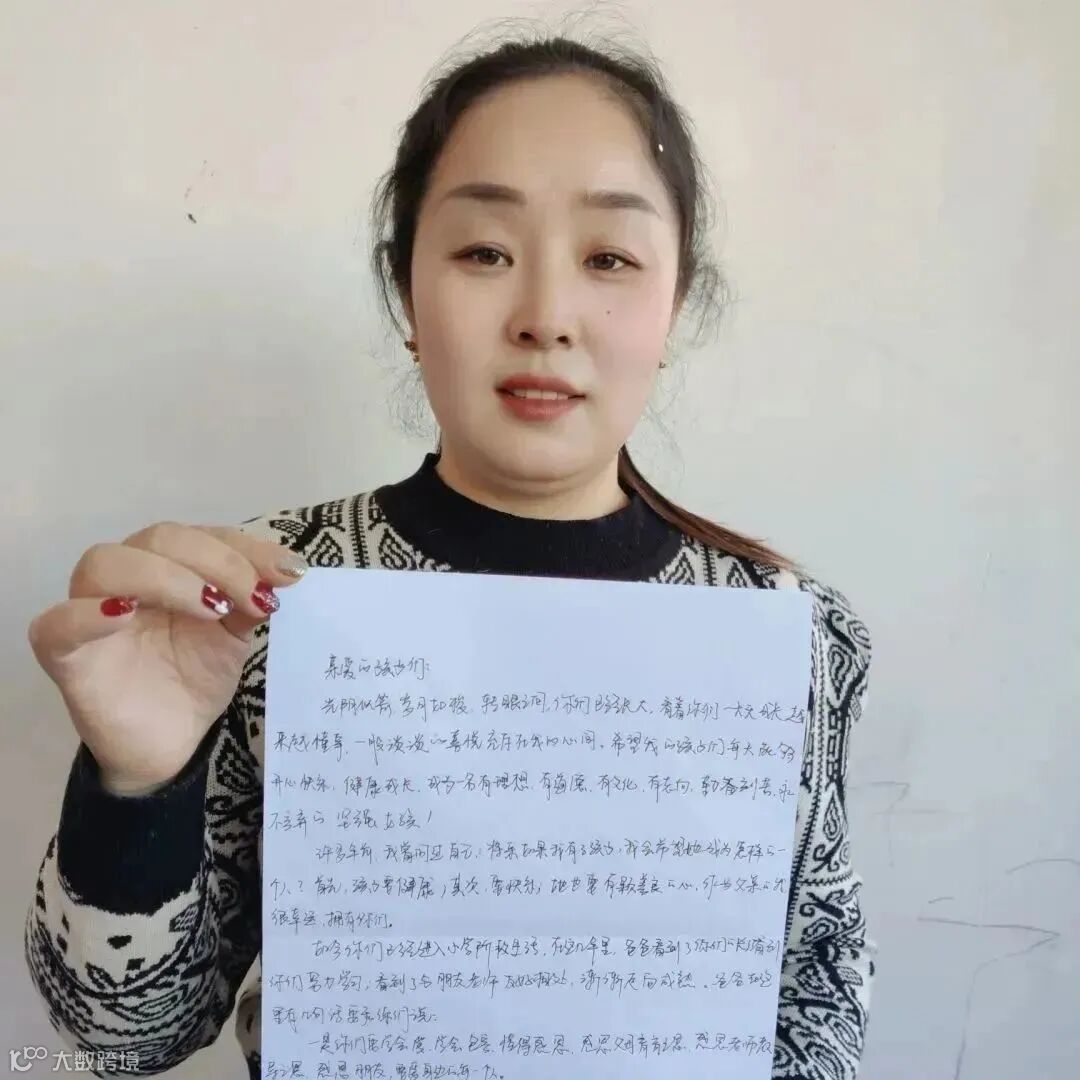 亲爱的孩子们：
光阴似箭，岁月如梭，转眼之间，你们已经长大，看着你们一天天成长，越
来越懂事，一股淡淡的喜悦充存在我的心间。希望我的孩子们每天能够
开心快乐，健康成长，成为一名有理想，有道德，有文化，有志向，勤奋刻苦，永
不言弃的坚强女孩！
许多年前，我曾问过自己：将来如果我有了孩子，我会希望她成为怎样的一
个人？首先，孩子要健康；其次，要快乐；她也要有颗善良的心，作为父亲的我
很幸运，拥有你们。
如今你们已经进入小学阶段生活，在这几年里，爸爸看到了你们的
你们努力学习，看到了与朋友老师友好相处，渐渐走向成熟。爸爸在这
里有几句话要和你们说：
一是你们要学会爱，学会包容，懂得感恩，感恩父母养育之恩，感恩老师教
导之恩，感恩朋友，
大数跨境